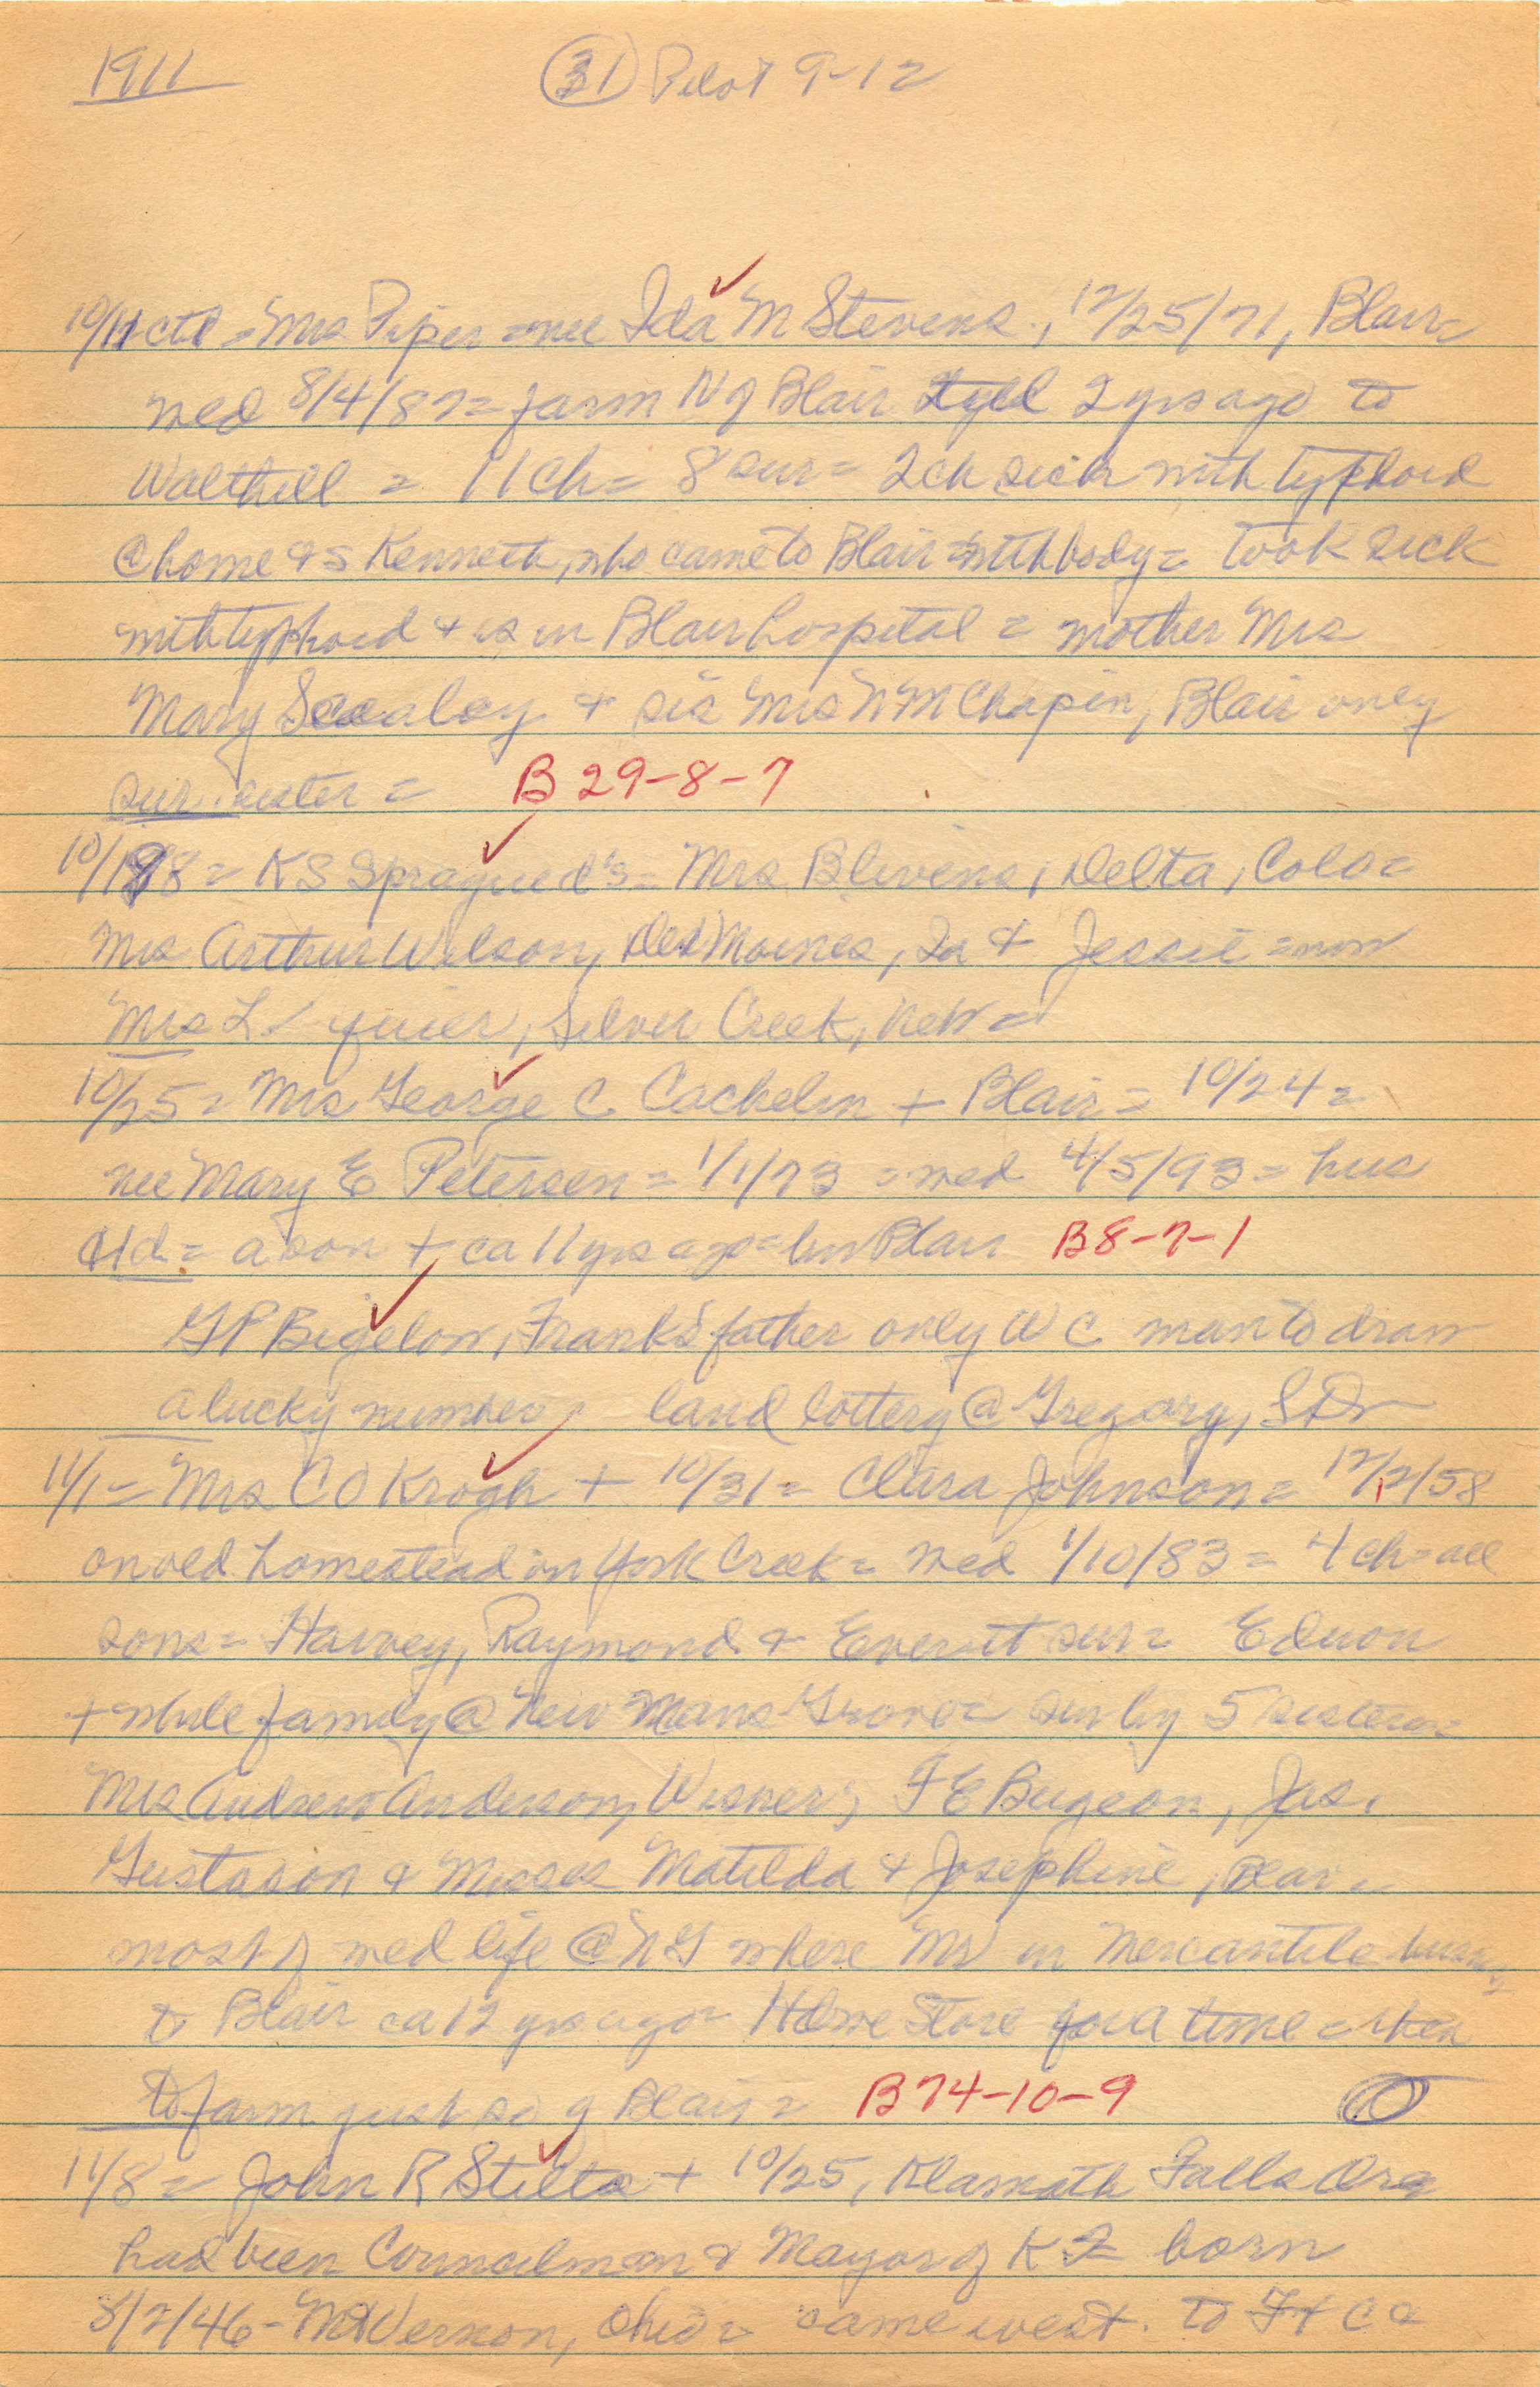 1911 (31) Pilot 9-12
10/11 ctd = Mrs Piper = nee Ida M Stevens, 12/25/71, Blair =
wed 8/4/87 = farm N of Blair 2 yrs ago to
Walthill = 11 ch = 8 sur = 2 ch sick with typhoid
@ home & s Kenneth, who came to Blair with body = took sick
with typhoid & is in Blair hospital = mother Mrs
Mary & sis Mrs W M Chapin, Blair only
sur. sister = B 29-8-7
10/18 = K S Sprague d's = Mrs Blivens, Delta, Colo =
Mrs Arthur Wilson, Des Moines, Ia & Jessie = now
Mrs L, Silver Creek, Neb =
10/25 = Mrs George C Cachelin + Blair = 10/24 =
nee Mary E Petersen = 1/1/73 = wed 4/5/93 = hus
& 1 d = a son + ca 11 yrs ago = bur Blair B 8-7-1
G P Bigelow, Frank's father only W C man to draw
a lucky number, land lottery @ Gregory, S D
11/1 = Mrs C O Krogh + 10/31 = Clara Johnson = 12/2/58
on old homestead on York Creek = wed 1/10/83 = 4 ch = all
sons = Harvey, Raymond & Everett sur =
+ while family @ New Mans Grove = sur by 5 sisters =
Mrs Andrew Anderson, Wisner, F E, Jas.
Gustason & Misses Matilda & Josephine, Blair =
most of wed life @ N G where Mr in mercantile
to Blair ca 12 yrs ago = Store for a time = then
to farm just so of Blair = B 74-10-9
11/8 = John R Stilts + 10/25, Klamath Falls Ore
had been Councilman & Mayor of K F = born
8/2/46 - Mt Vernon, Ohio = came west to Ft C